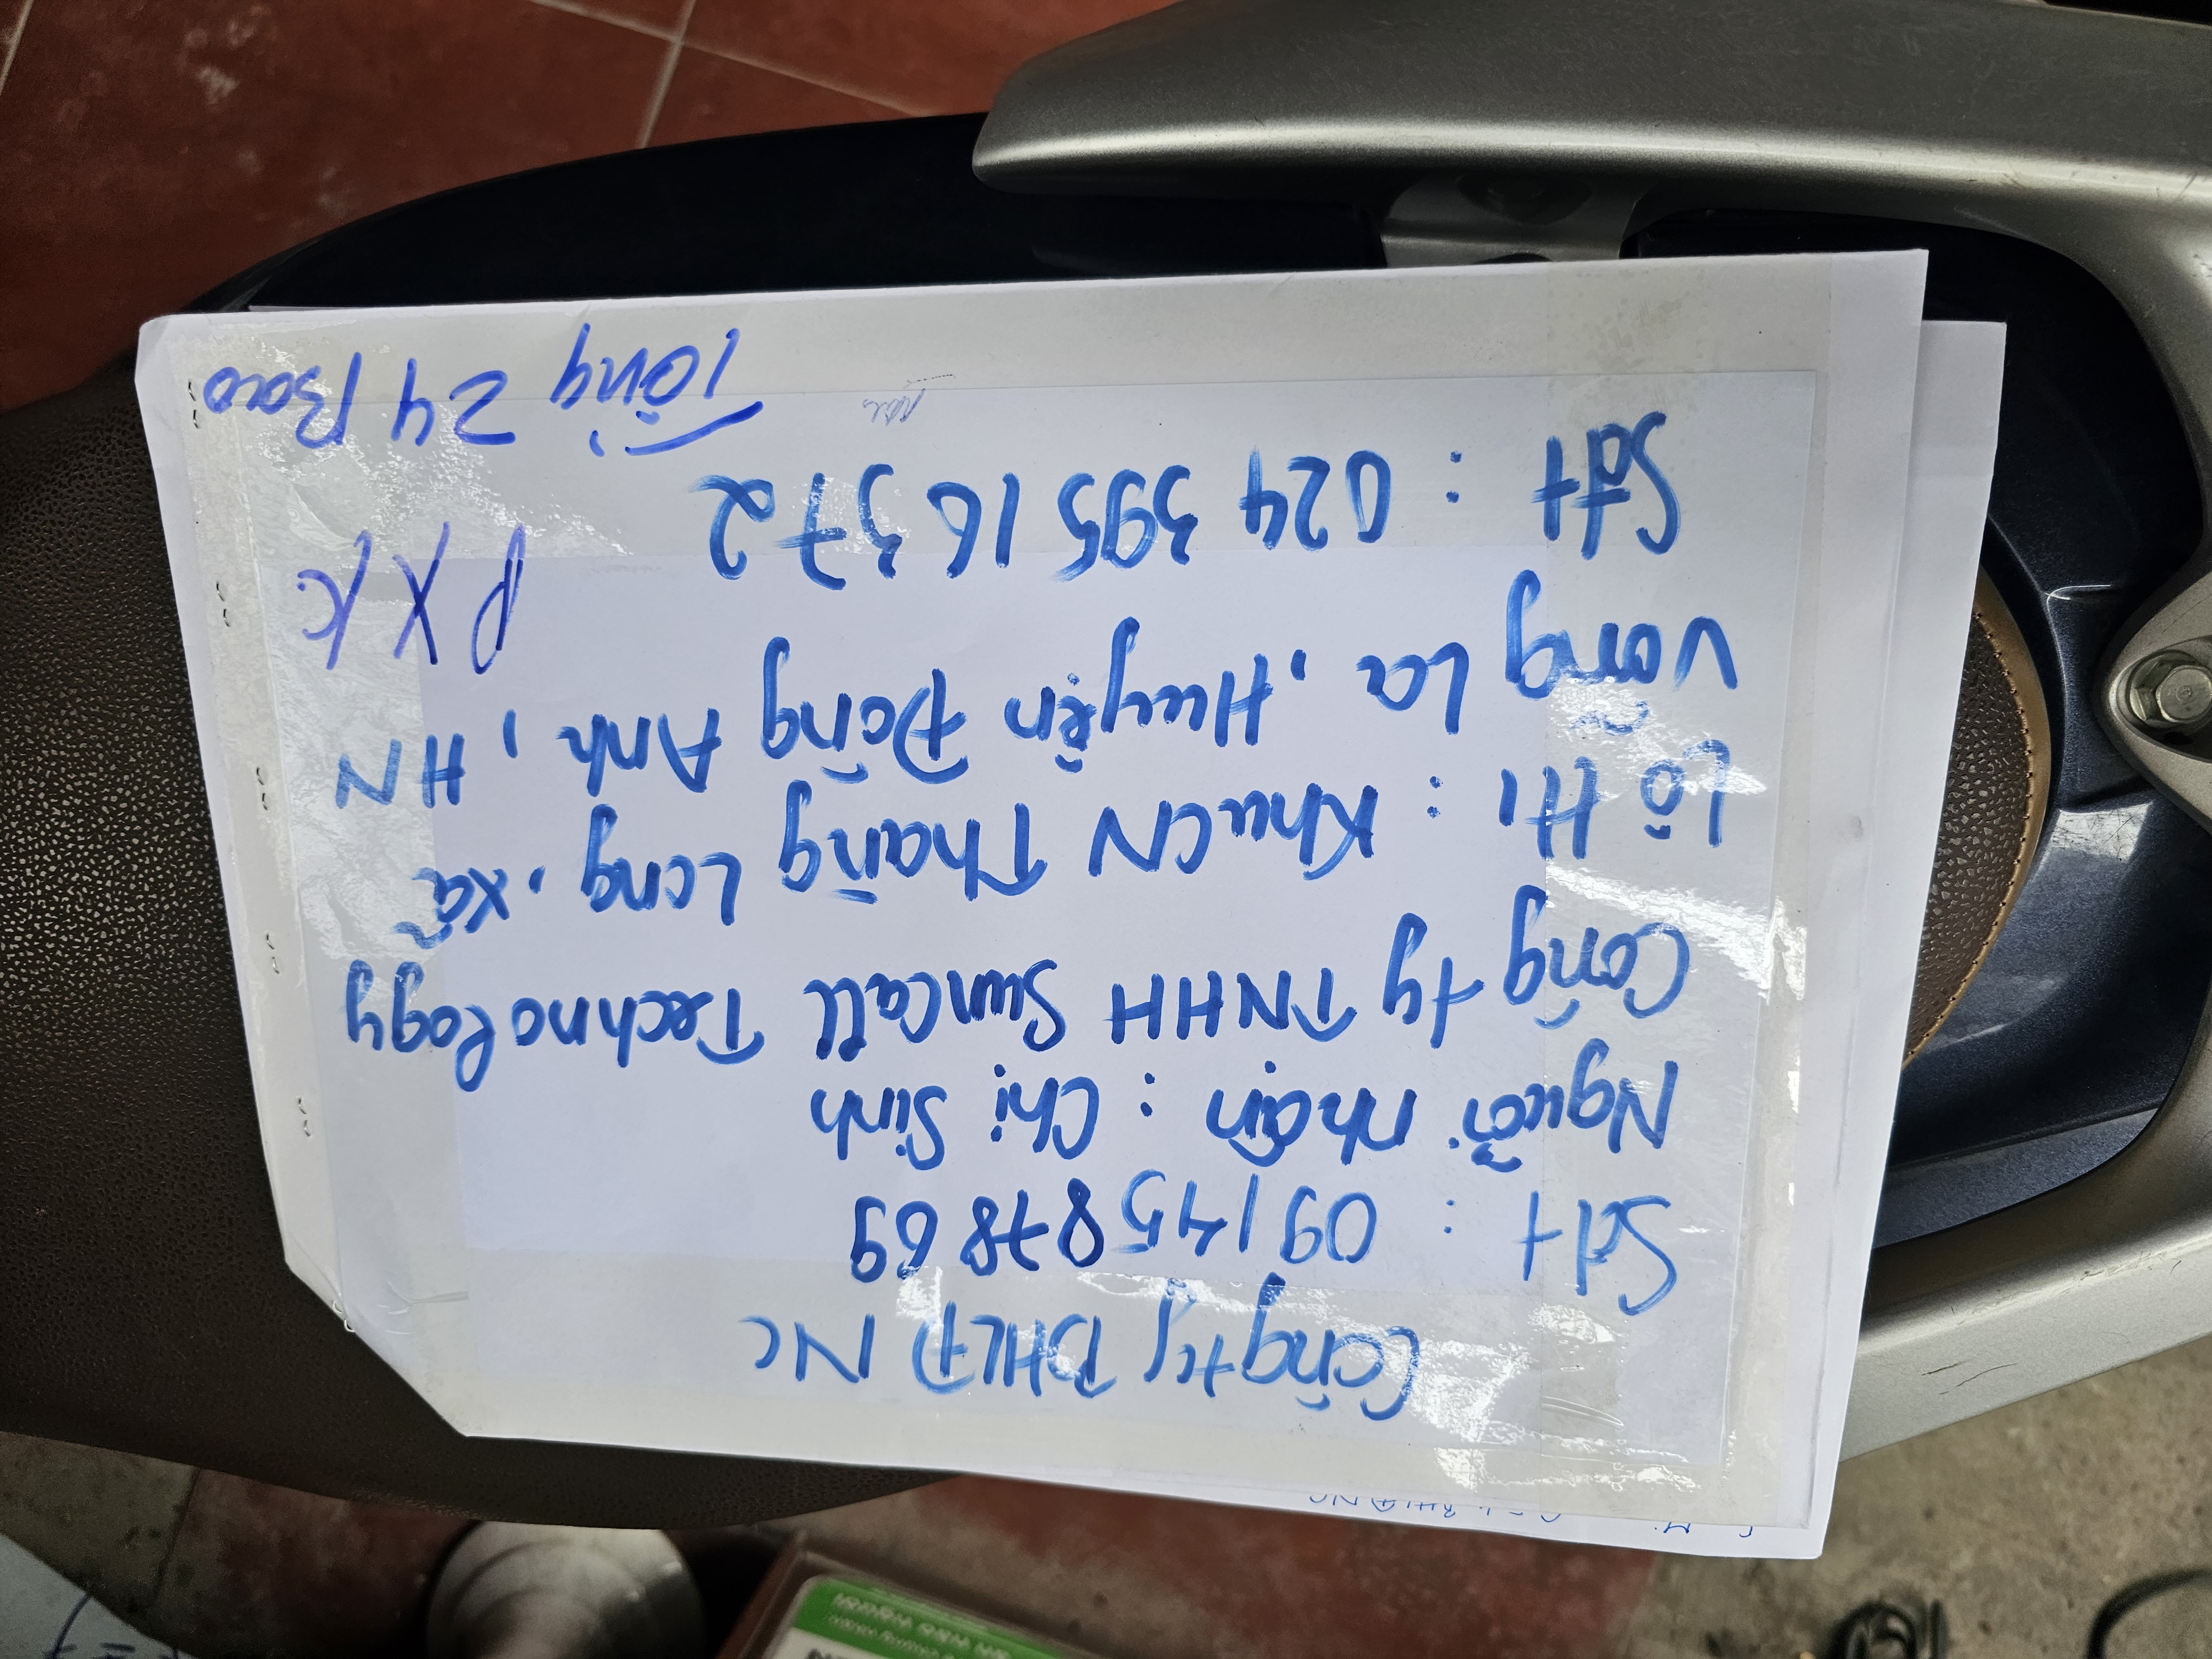 Công ty BHLĐ NC
Sdt : 0914587869
Người nhận : Chị Sinh
Công ty TNHH Suncall Technology
Lô H1 : KhuCN Thăng Long, xã
Võng La, Huyện Đông Anh, HN
Sđt : 024 39516372
PXK
Tổng 24 Bao